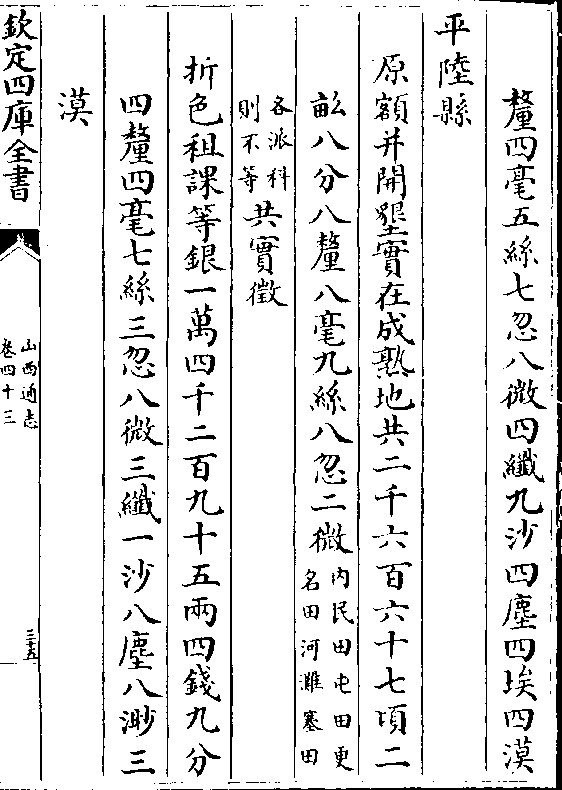 釐四毫五絲七忽八微四纖九沙四塵四埃四漠
平陸縣
原額并開墾實在成熟地共二千六百六十七頃二
畝八分八釐八毫九絲八忽二微内民田屯田更
名田河灘塞田
各派科
則不等共實徵
折色租課等銀一萬四千二百九十五兩四錢九分
四釐四毫七絲三忽八微三纖一沙八塵八渺三
漠
欽定四庫全書
山西通志
卷四十三
三五